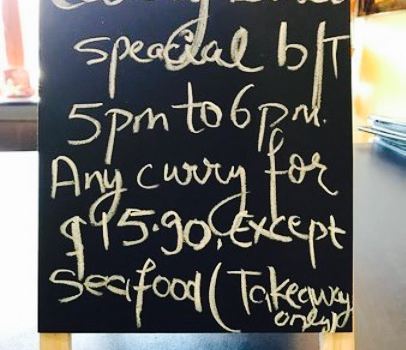 speacial b/T
5pm to 6pm.
Any curry for
$15.90, Except
Seafood (Takeaway
only)